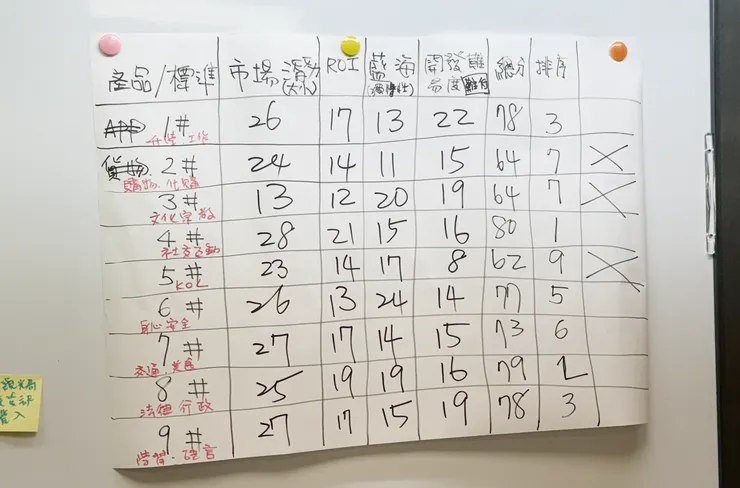 產品/標準 市場 ROI 藍海 開發難易度 總分 排序
1# 26 17 13 22 78 3
工作
2# 24 14 11 15 64 7 X
購物.代購
3# 13 12 20 19 64 7 X
文化宗教
4# 28 21 15 16 80 1
社交互動
5# 23 14 17 8 62 9 X
KOL
6# 26 13 24 14 77 5
身心安全
7# 27 17 14 15 73 6
交通
8# 25 19 19 16 79 2
法律行政
9# 27 17 15 19 78 3
語言